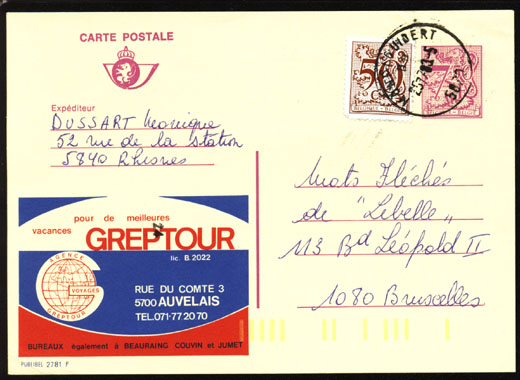 CARTE POSTALE
50
BELGIQUE - BELGIË
Expéditeur
DUSSART Monique
52 rue de la Station
5840 Rhisnes
Mots Fléchés
de "Libelle"
113 Bd Léopold II
1080 Bruxelles
pour de meilleures
vacances
GREPTOUR
lic. B. 2022
AGENCE
VOYAGES
GREPTOUR
RUE DU COMTE 3
5700 AUVELAIS
TEL.071-77 20 70
BUREAUX également à BEAURAING COUVIN et JUMET
PUBLIBEL 2781 F